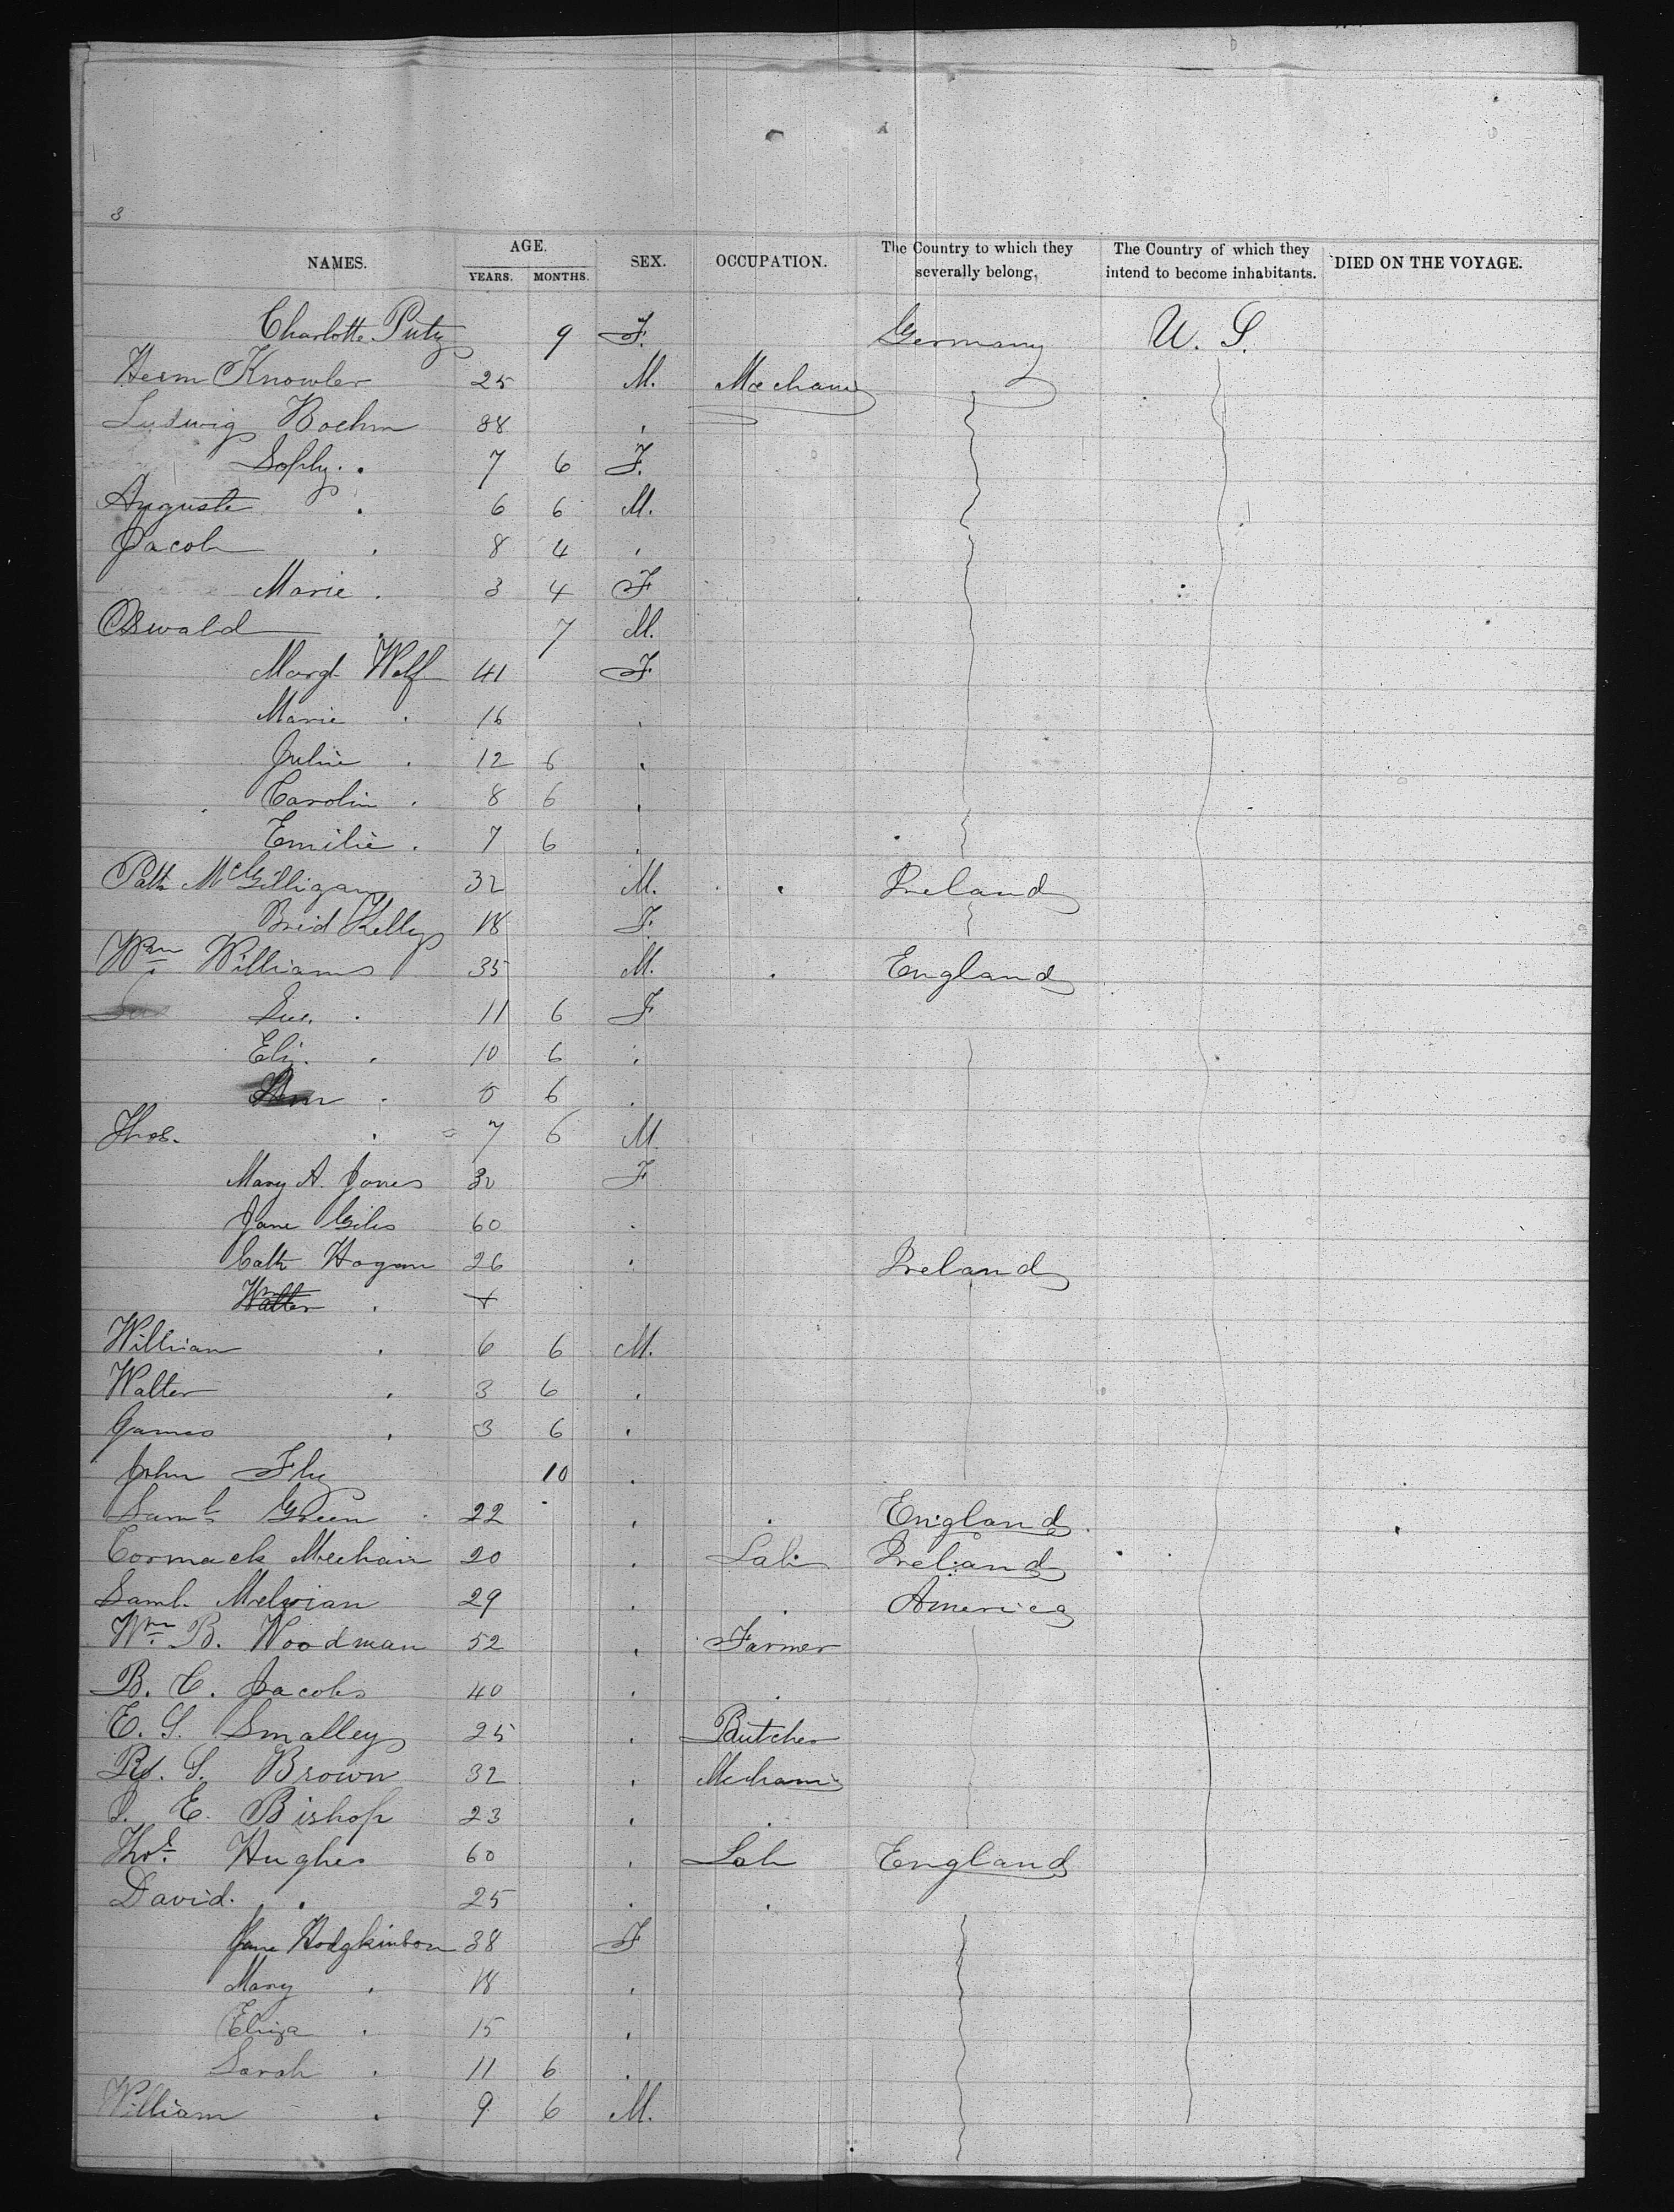 3
NAMES. AGE. YEARS. MONTHS. SEX. OCCUPATION. The Country to which they severally belong. The Country of which they intend to become inhabitants. DIED ON THE VOYAGE.
Charlotte Putz 9 F. Germany U. S.
Herm Knowler 25 M. Mechanic
Ludwig Boehm 38 .
Sophy . . 7 6 F.
Auguste . 6 6 M.
Jacob . 8 4 .
Marie . 3 4 F
Oswald . 7 M.
Margt Wolf 41 F
Marie . 16 .
Julie . 12 6 .
Carolin . 8 6 .
Emilie . 7 6 .
Patk McGilligan 32 M. . Ireland
Brid Kelly 18 F.
Wm Williams 35 M. . England
Sue. . 11 6 F
Eliz. . 10 6 .
. 6 .
Thos. . 7 6 M
Mary A. Jones 30 F
Jane Giles 60 .
Cath Hogan 26 . Ireland
Walter .
William . 6 6 M.
Walter . 3 6 .
James . 3 6 .
John 10 .
Saml Green 22 . . England
Cormack Meehan 20 . Lab Ireland
Saml. 29 . . America
Wm B. Woodman 52 . Farmer
B. C. Jacobs 40 . .
E. S. Smalley 25 . Butcher
S. Brown 32 . Mechanic
E. Bishop 23 . .
Thos. Hughes 60 . Lab England
David . 25 . .
Jane Hodgkinson 38 F
Mary . 18 .
Eliza . 15 .
Sarah . 11 6 .
William . 9 6 M.